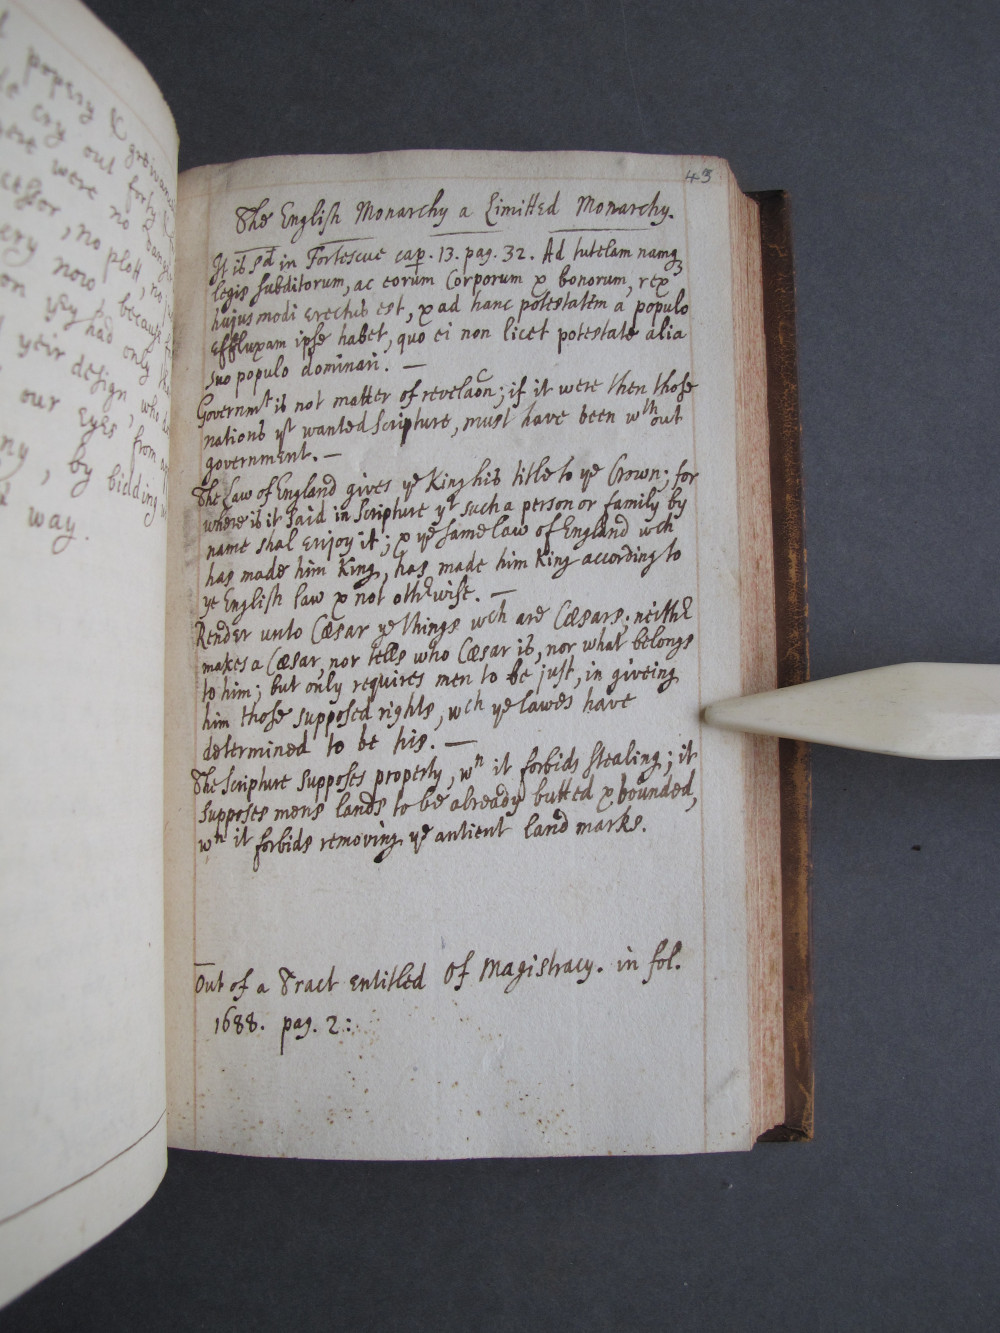 popery & greivances
cry out forty
were no danger
cessor, no plott, no
very now, because
on yey had only
yeir design, who
our Eyes, from
ny, by bidding
way.
43
The English Monarchy a Limitted Monarchy.
It is sd in Fortescue cap. 13. pag. 32. Ad tutelam namq
legis subditorum, ac eorum Corporum & bonorum, rex
hujusmodi erectus est, & ad hanc potestatem a populo
effluxam ipse habet, quo ei non licet potestate alia
suo populo dominari. —
Governmt is not matter of revelaon; if it were then those
nations yt wanted Scripture, must have been wthout
government. —
The Law of England gives ye King his title to ye Crown; for
where is it said in Scripture yt such a person or family by
name shal enjoy it; & ye same law of England wch
has made him King, has made him King according to
ye English law & not othrwise. —
Render unto Cæsar ye things wch are Cæsars; neithr
makes a Cæsar, nor tells who Cæsar is, nor what belongs
to him; but only requires men to be just, in giveing
him those supposed rights, wch ye lawes have
determined to be his. —
The Scripture supposes property, wn it forbids stealing; it
supposes mens lands to be already butted & bounded,
wn it forbids removing ye antient land marks.
Out of a Tract entitled Of Magistracy. in fol.
1688. pag. 2: